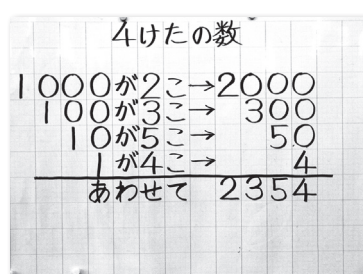 4けたの数
1000が2こ→2000
100が3こ→300
10が5こ→50
1が4こ→4
あわせて 2354